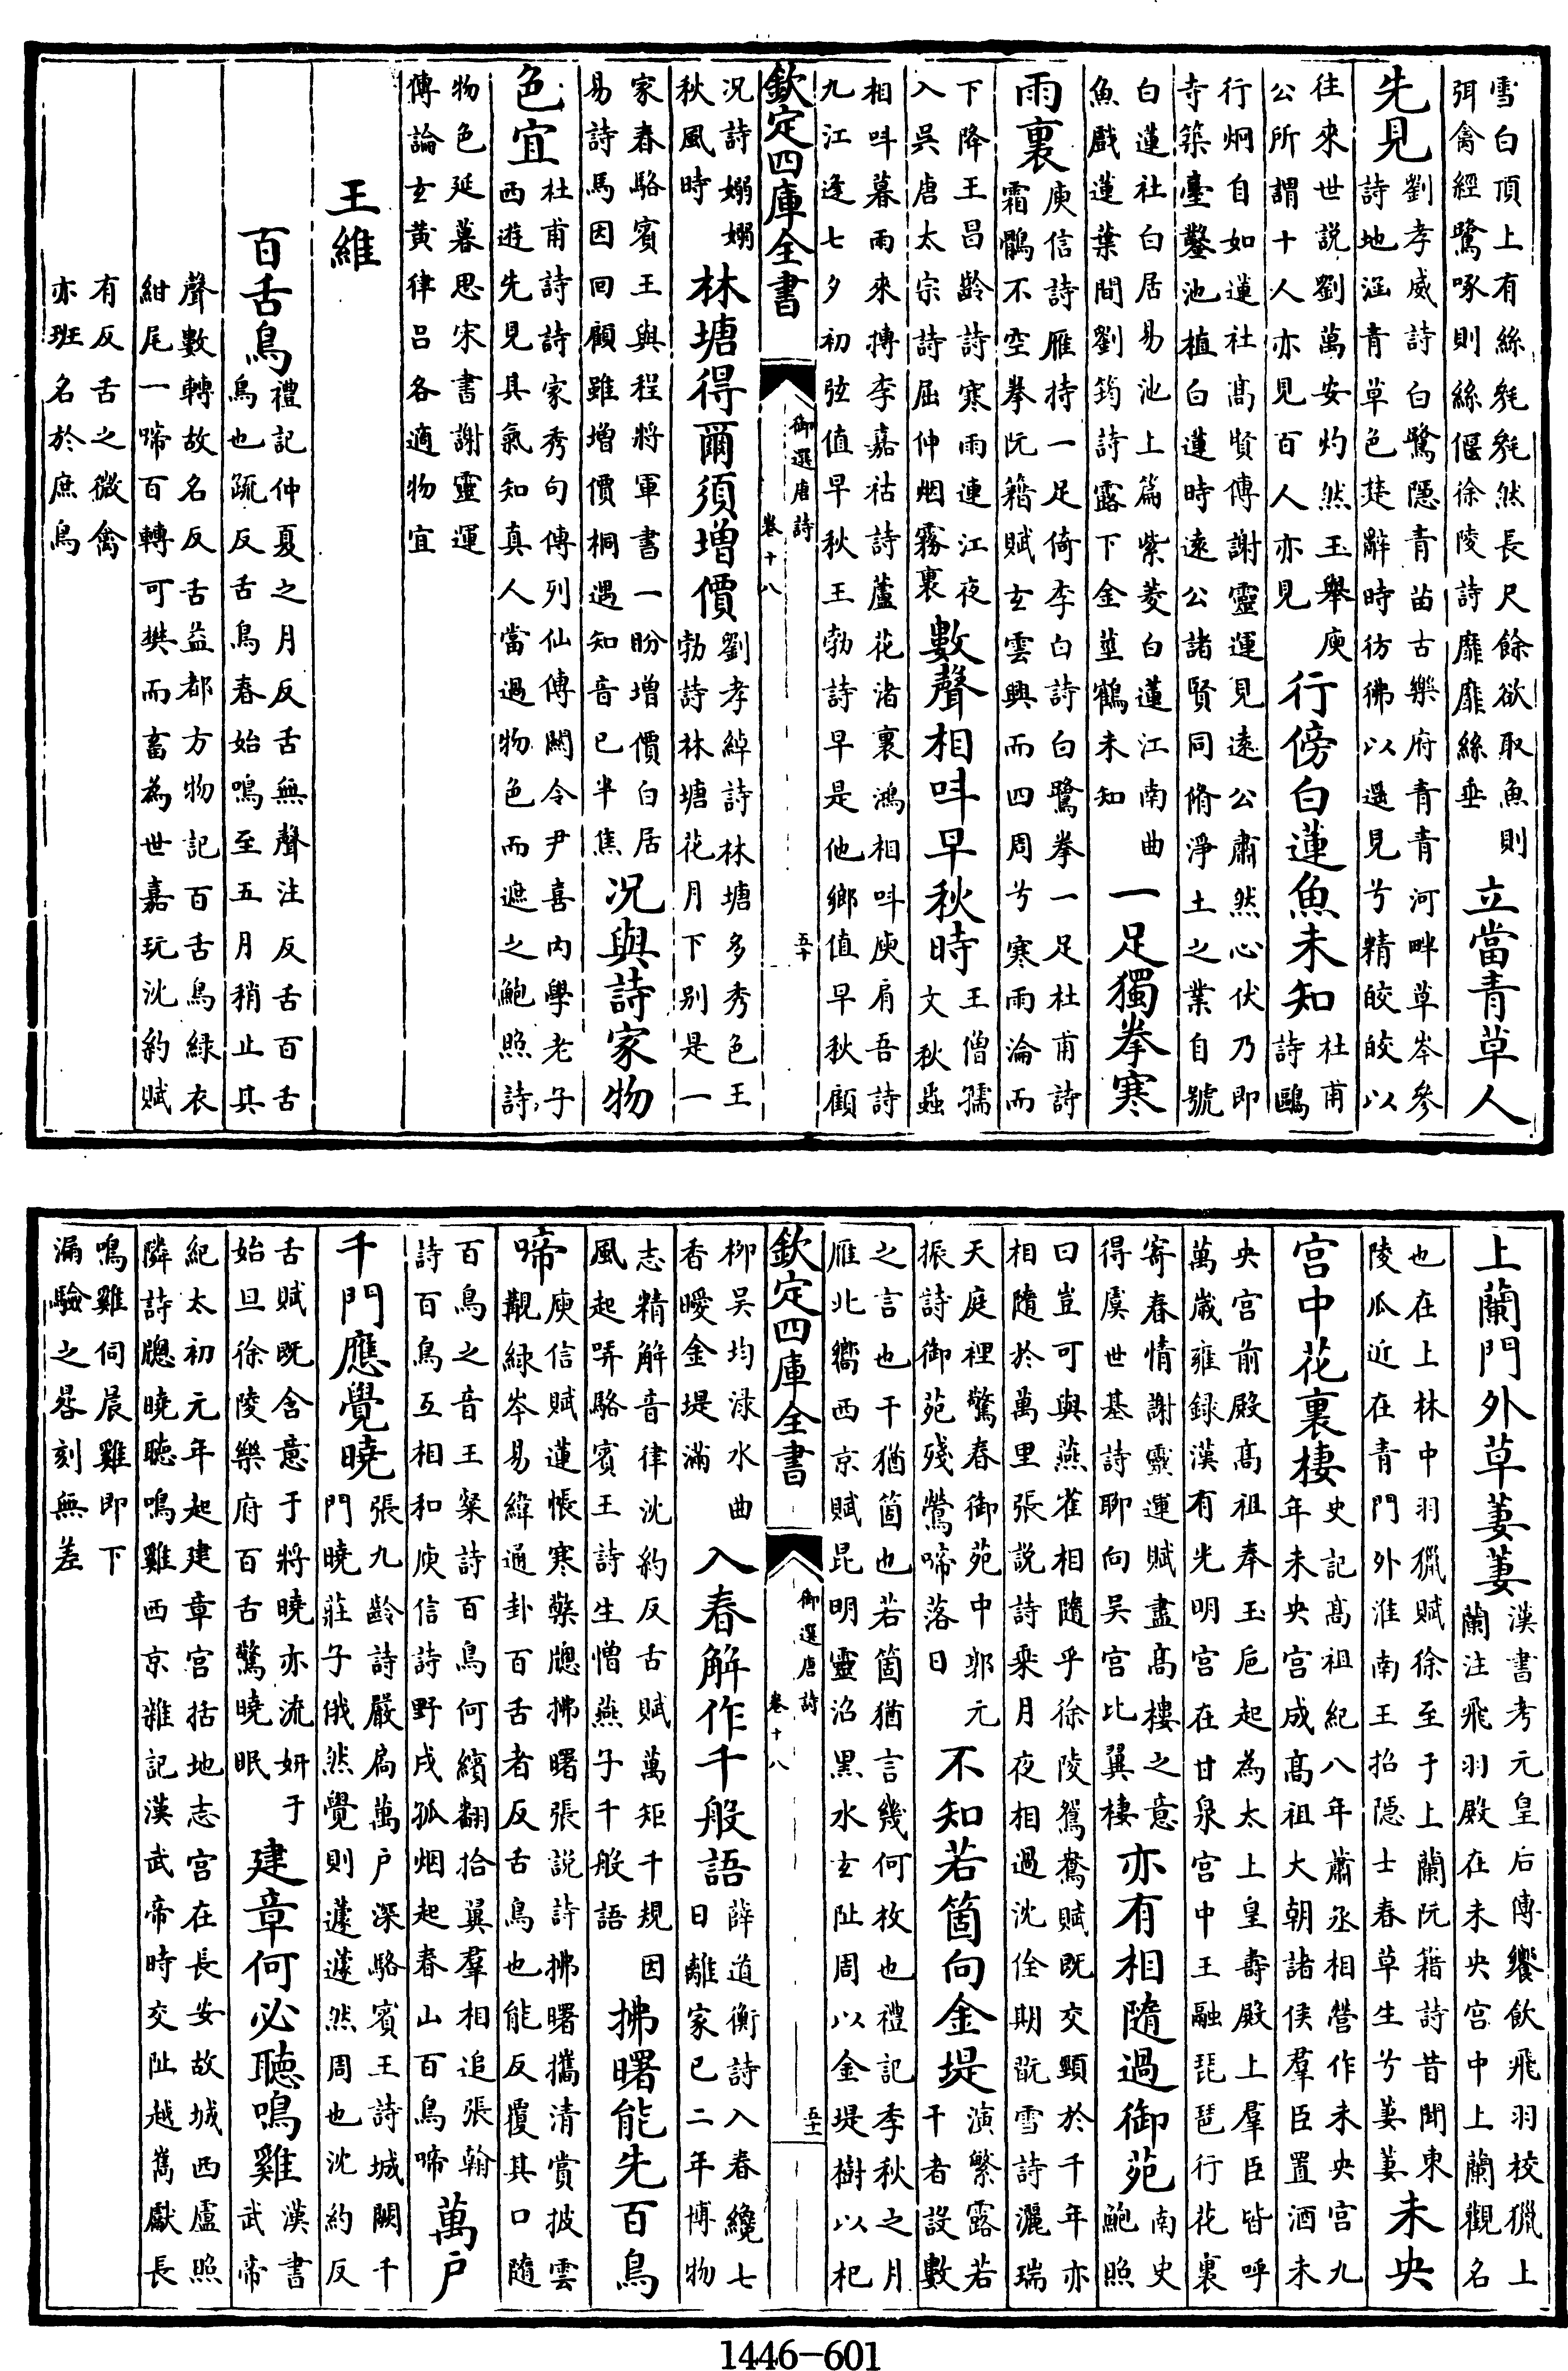 雪白頂上有絲毿毿然長尺餘欲取魚則弭禽經鷺啄則絲偃徐陵詩靡靡絲垂立當青草人
先見劉孝威詩白鷺隱青苗古樂府青青河畔草岑參詩地涵青草色楚辭時彷彿以遥見兮精皎皎以
往來世説劉萬安灼然玉舉庾公所謂十人亦見百人亦見行傍白蓮魚未知杜甫詩鷗
行炯自如蓮社髙賢傳謝靈運見遠公肅然心伏乃即寺築臺鑿池植白蓮時遠公諸賢同脩淨土之業自號
白蓮社白居易池上篇紫菱白蓮江南曲魚戲蓮葉間劉筠詩露下金莖鶴未知一足獨拳寒
雨裏庾信詩雁持一足倚李白詩白鷺拳一足杜甫詩霜鶻不空拳阮籍賦玄雲興而四周兮寒雨淪而
下降王昌齡詩寒雨連江夜入吳唐太宗詩屈伸烟霧裏數聲相呌早秋時王僧孺文秋蝨
相呌暮雨來摶李嘉祜詩蘆花渚裏鴻相呌庾肩吾詩九江逢七夕初弦值早秋王勃詩早是他鄉值早秋顧
欽定四庫全書 御選唐詩 卷十八 五十
況詩嫋嫋秋風時林塘得爾須增價劉孝綽詩林塘多秀色王勃詩林塘花月下别是一
家春駱賓王與程將軍書一盼增價白居易詩馬因回顧雖增價桐遇知音已半焦況與詩家物
色宜杜甫詩詩家秀句傳列仙傳闗令尹喜内學老子西遊先見其氣知真人當過物色而遮之鮑照詩
物色延暮思宋書謝靈運傳論玄黄律吕各適物宜
王維
百舌鳥禮記仲夏之月反舌無聲注反舌百舌鳥也疏反舌鳥春始鳴至五月稍止其
聲數轉故名反舌益都方物記百舌鳥緑衣紺尾一啼百轉可樊而畜為世嘉玩沈約賦
有反舌之微禽亦班名於庶鳥
上蘭門外草萋萋漢書考元皇后傳饗飲飛羽校獵上蘭注飛羽殿在未央宫中上蘭觀名
也在上林中羽獵賦徐至于上蘭阮籍詩昔聞東陵瓜近在青門外淮南王招隱士春草生兮萋萋未央
宫中花裏棲史記髙祖紀八年蕭丞相營作未央宫九年未央宫成髙祖大朝諸侯羣臣置酒未
央宫前殿髙祖奉玉巵起為太上皇壽殿上羣臣皆呼萬嵗雍録漢有光明宫在甘泉宫中王融琵琶行花裏
寄春情謝靈運賦盡髙樓之意得虞世基詩聊向吴宫比翼棲亦有相隨過御苑南史鮑照
曰豈可與燕雀相隨乎徐陵鴛鴦賦既交頸於千年亦相隨於萬里張説詩乗月夜相過沈佺期翫雪詩灑瑞
天庭裡驚春御苑中郭元振詩御苑殘鶯啼落日不知若箇向金堤演繁露若干者設數
之言也干猶箇也若箇猶言幾何枚也禮記季秋之月雁北嚮西京賦昆明靈沼黒水玄阯周以金堤樹以杞
欽定四庫全書 御選唐詩 卷十八 五十一
柳吴均渌水曲香曖金堤滿入春解作千般語薛道衡詩入春纔七日離家已二年博物
志精解音律沈約反舌賦萬矩千規因風起哢駱賓王詩生憎燕子千般語拂曙能先百鳥
啼庾信賦蓮帳寒檠牕拂曙張説詩拂曙攜清賞披雲覯緑岑易緯通卦百舌者反舌鳥也能反覆其口隨
百鳥之音王粲詩百鳥何繽翻拾翼羣相追張翰詩百鳥互相和庾信詩野戍孤烟起春山百鳥啼萬户
千門應覺曉張九齡詩嚴扃萬户深駱賓王詩城闕千門曉莊子俄然覺則蘧蘧然周也沈約反
舌賦既含意于將曉亦流妍于始旦徐陵樂府百舌驚曉眠建章何必聽鳴雞漢書武帝
紀太初元年起建章宫括地志宫在長安故城西盧照隣詩牕曉聽鳴雞西京雜記漢武帝時交阯越嶲獻長
鳴雞伺晨雞即下漏驗之晷刻無差
1446-601